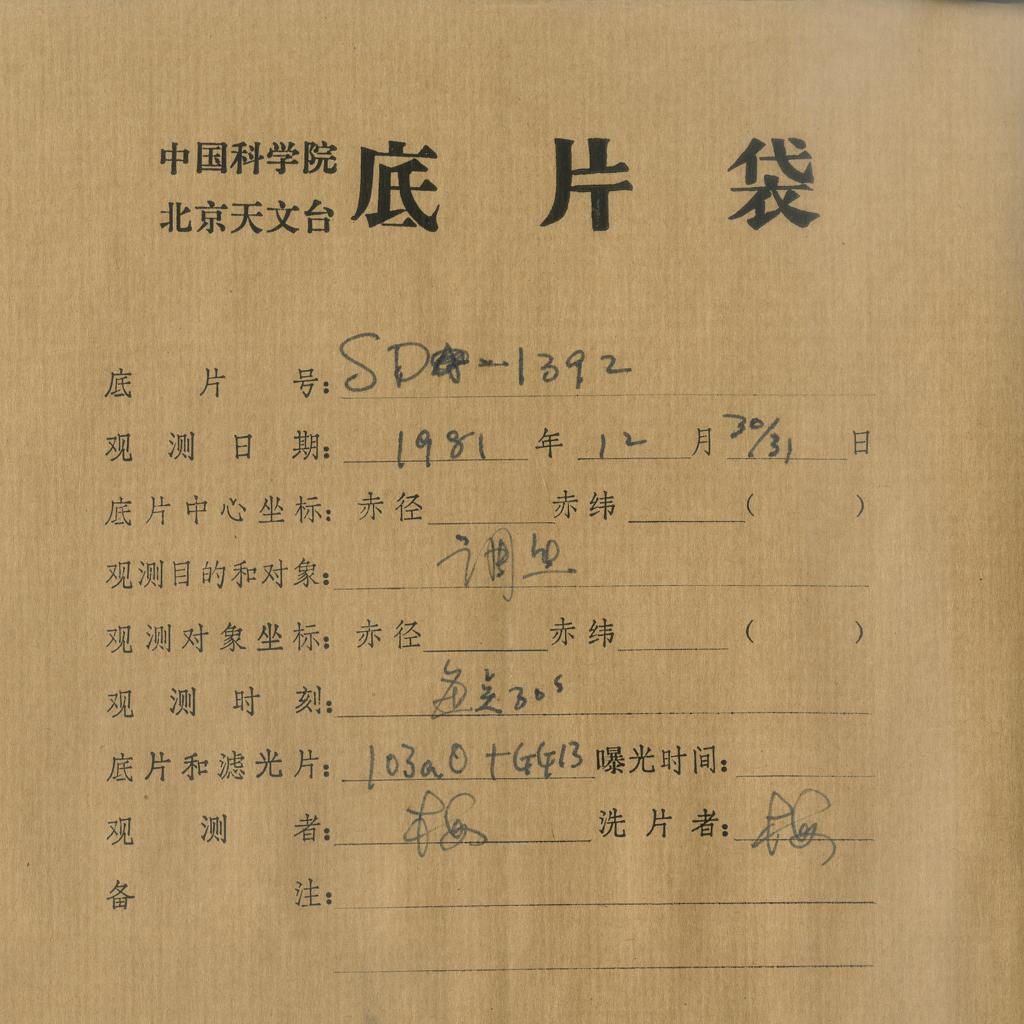 中国科学院
北京天文台
底片袋
底片号: SD-1392
观测日期: 1981年12月30/31日
底片中心坐标: 赤径 赤纬 ( )
观测目的和对象: 调焦
观测对象坐标: 赤径 赤纬 ( )
观测时刻: 每点30s
底片和滤光片: 103aO+GG13 曝光时间:
观测者: 梅 洗片者: 梅
备注: